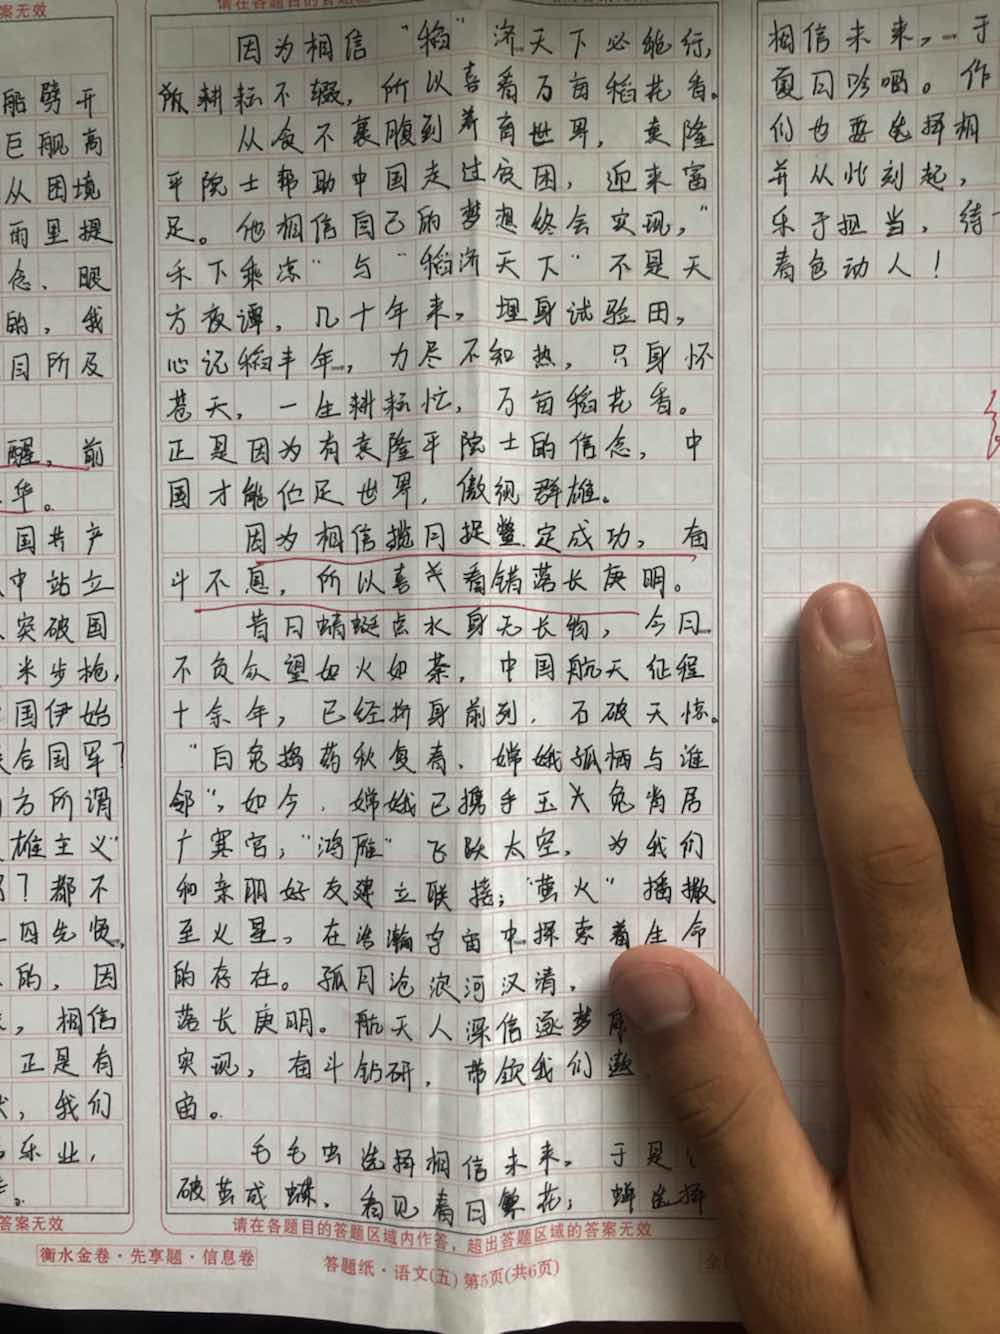 案无效
船劈开
巨舰高
从困境
雨里提
念、眼
的，我
目所及
醒，前
华。
国共产
中站立
突破国
米步枪，
国伊始
合国军？
方所谓
雄主义”
？都不
四先贤，
的，因
，相信
正是有
，我们
乐业，
答案无效
请在各题目的答题
因为相信“稻”济天下必能行，
故耕耘不辍，所以喜看万亩稻花香。
从食不裹腹到养育世界，袁隆
平院士帮助中国走过贫困，迎来富
足。他相信自己的梦想终会实现，“
禾下乘凉”与“稻济天下”不是天
方夜谭，几十年来，埋身试验田，
心记稻丰年，力尽不知热，只身怀
苍天，一生耕耘忙，万亩稻花香。
正是因为有袁隆平院士的信念，中
国才能伫足世界，傲视群雄。
因为相信揽月捉鳖定成功，奋
斗不息，所以喜看错落长庚明。
昔日蜻蜓点水身无长物，今日
不负众望如火如荼，中国航天征程
十余年，已经跻身前列，石破天惊。
“白兔捣药秋复春，嫦娥孤栖与谁
邻”，如今，嫦娥已携手玉兔常居
广寒宫；“鸿雁”飞跃太空，为我们
和亲朋好友建立联接；“萤火”播撒
至火星，在浩瀚宇宙中探索着生命
的存在。孤月沧浪河汉清，
落长庚明。航天人深信逐梦
实现，奋斗钻研，带领我们遨
宙。
毛毛虫选择相信未来，于是
破茧成蝶，看见春日繁花；蝉选择
请在各题目的答题区域内作答，超出答题区域的答案无效
相信未来，于
夏日吟唱。作
们也要选择相
并从此刻起，
乐于担当，待
春色动人！
衡水金卷·先享题·信息卷
答题纸·语文(五) 第5页(共6页)
全